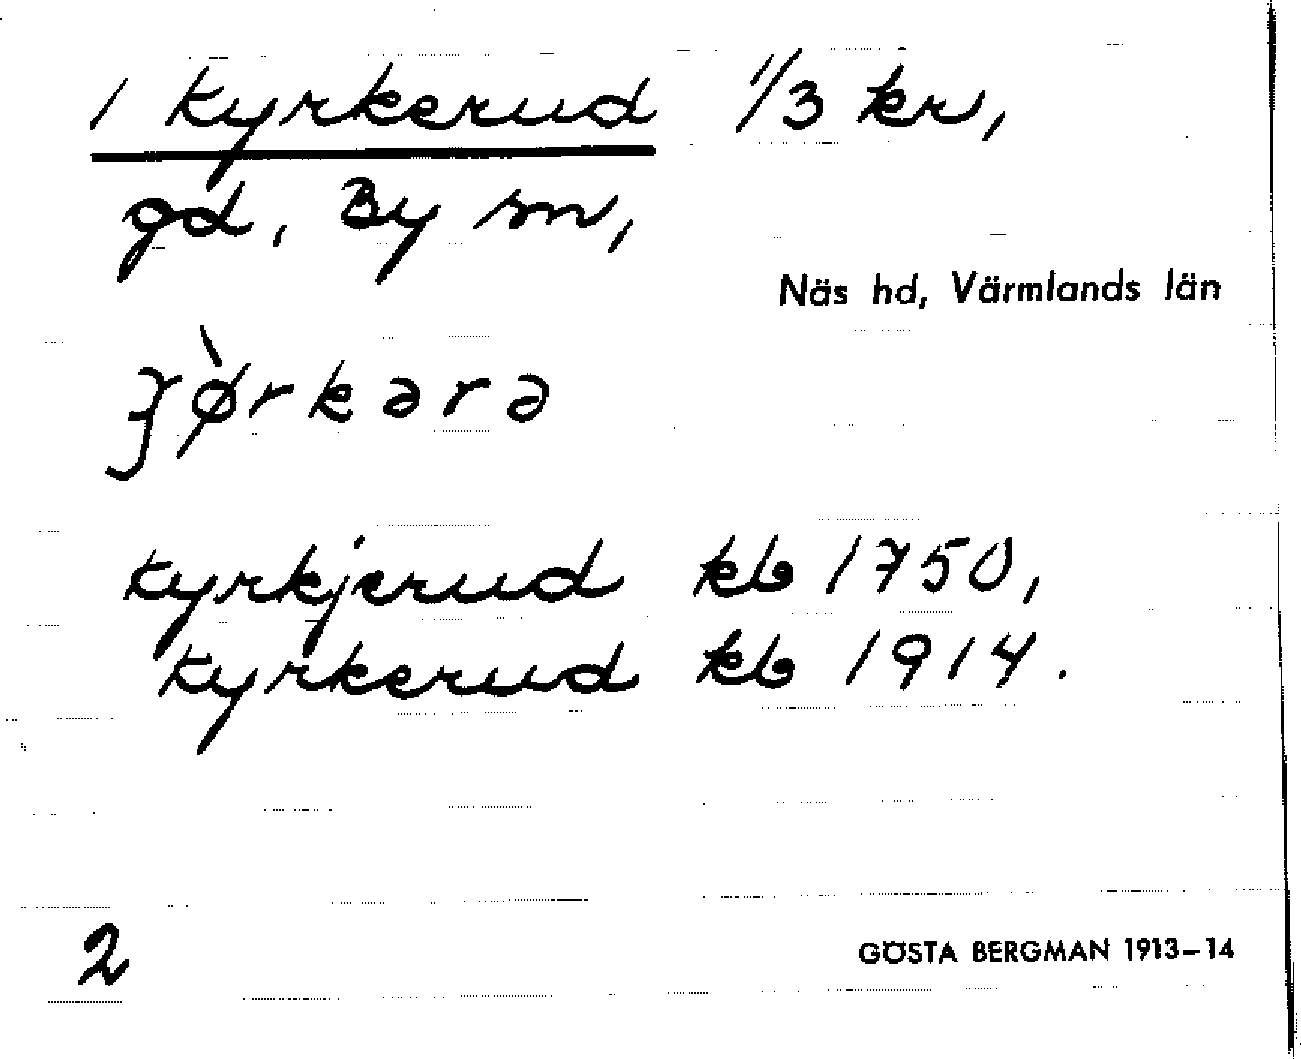 1 Kyrkerud 1/3 kr,
gd, By sn,
Näs hd, Värmlands län
kyrkjerud kb 1750,
kyrkerud kb 1914.
2
GÖSTA BERGMAN 1913–14